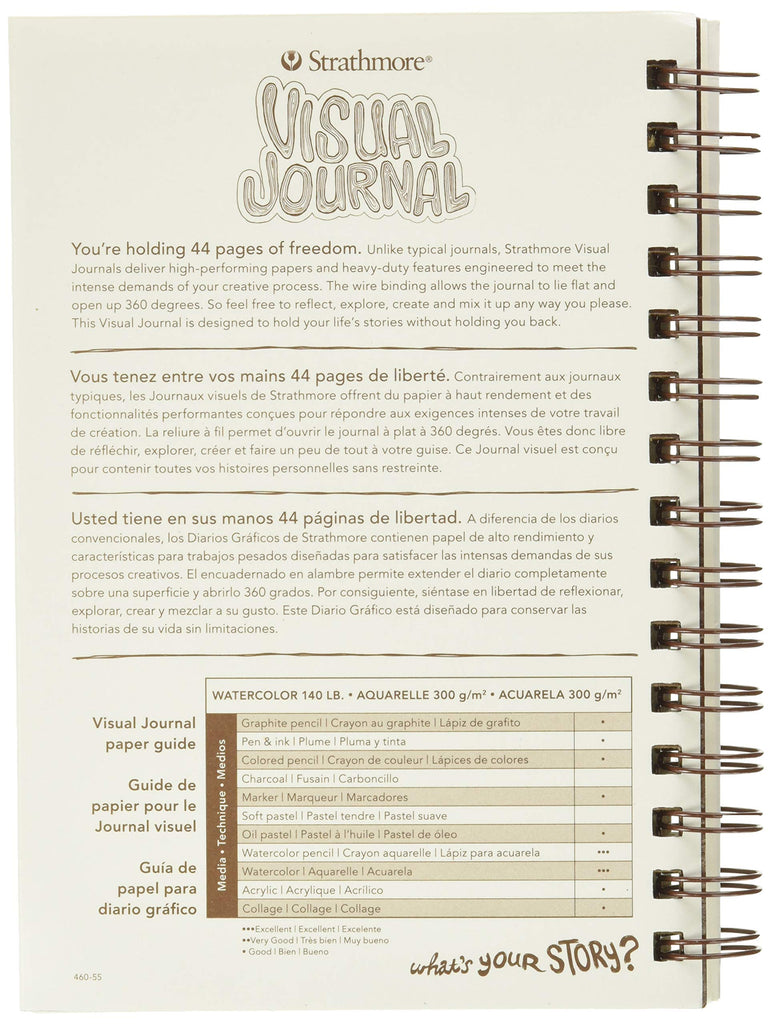 Strathmore®
VISUAL
JOURNAL
You're holding 44 pages of freedom. Unlike typical journals, Strathmore Visual
Journals deliver high-performing papers and heavy-duty features engineered to meet the
intense demands of your creative process. The wire binding allows the journal to lie flat and
open up 360 degrees. So feel free to reflect, explore, create and mix it up any way you please.
This Visual Journal is designed to hold your life's stories without holding you back.
Vous tenez entre vos mains 44 pages de liberté. Contrairement aux journaux
typiques, les Journaux visuels de Strathmore offrent du papier à haut rendement et des
fonctionnalités performantes conçues pour répondre aux exigences intenses de votre travail
de création. La reliure à fil permet d'ouvrir le journal à plat à 360 degrés. Vous êtes donc libre
de réfléchir, explorer, créer et faire un peu de tout à votre guise. Ce Journal visuel est conçu
pour contenir toutes vos histoires personnelles sans restreinte.
Usted tiene en sus manos 44 páginas de libertad. A diferencia de los diarios
convencionales, los Diarios Gráficos de Strathmore contienen papel de alto rendimiento y
características para trabajos pesados diseñadas para satisfacer las intensas demandas de sus
procesos creativos. El encuadernado en alambre permite extender el diario completamente
sobre una superficie y abrirlo 360 grados. Por consiguiente, siéntase en libertad de reflexionar,
explorar, crear y mezclar a su gusto. Este Diario Gráfico está diseñado para conservar las
historias de su vida sin limitaciones.
Visual Journal
paper guide
Guide de
papier pour le
Journal visuel
Guía de
papel para
diario gráfico
WATERCOLOR 140 LB. • AQUARELLE 300 g/m² • ACUARELA 300 g/m²
Media • Technique • Medios
Graphite pencil | Crayon au graphite | Lápiz de grafito •
Pen & ink | Plume | Pluma y tinta •
Colored pencil | Crayon de couleur | Lápices de colores •
Charcoal | Fusain | Carboncillo
Marker | Marqueur | Marcadores •
Soft pastel | Pastel tendre | Pastel suave
Oil pastel | Pastel à l'huile | Pastel de óleo •
Watercolor pencil | Crayon aquarelle | Lápiz para acuarela •••
Watercolor | Aquarelle | Acuarela •••
Acrylic | Acrylique | Acrílico •
Collage | Collage | Collage •
•••Excellent | Excellent | Excelente
••Very Good | Très bien | Muy bueno
• Good | Bien | Bueno
what's YOUR STORY?
460-55